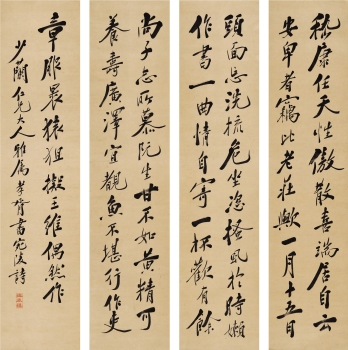 嵇康任天性傲散喜端居自云
安卑者竊比老莊歟一月十五日
頭面忘洗梳危坐恣搔虱於時嬾
作書一曲情自寄一杯歡有餘
尚子志所慕阮生甘不如黃精可
養壽廣澤宜觀魚不堪行作吏
章服裹猿狙擬三維偶然作
少蘭仁兄大人雅屬孝胥書宛陵詩